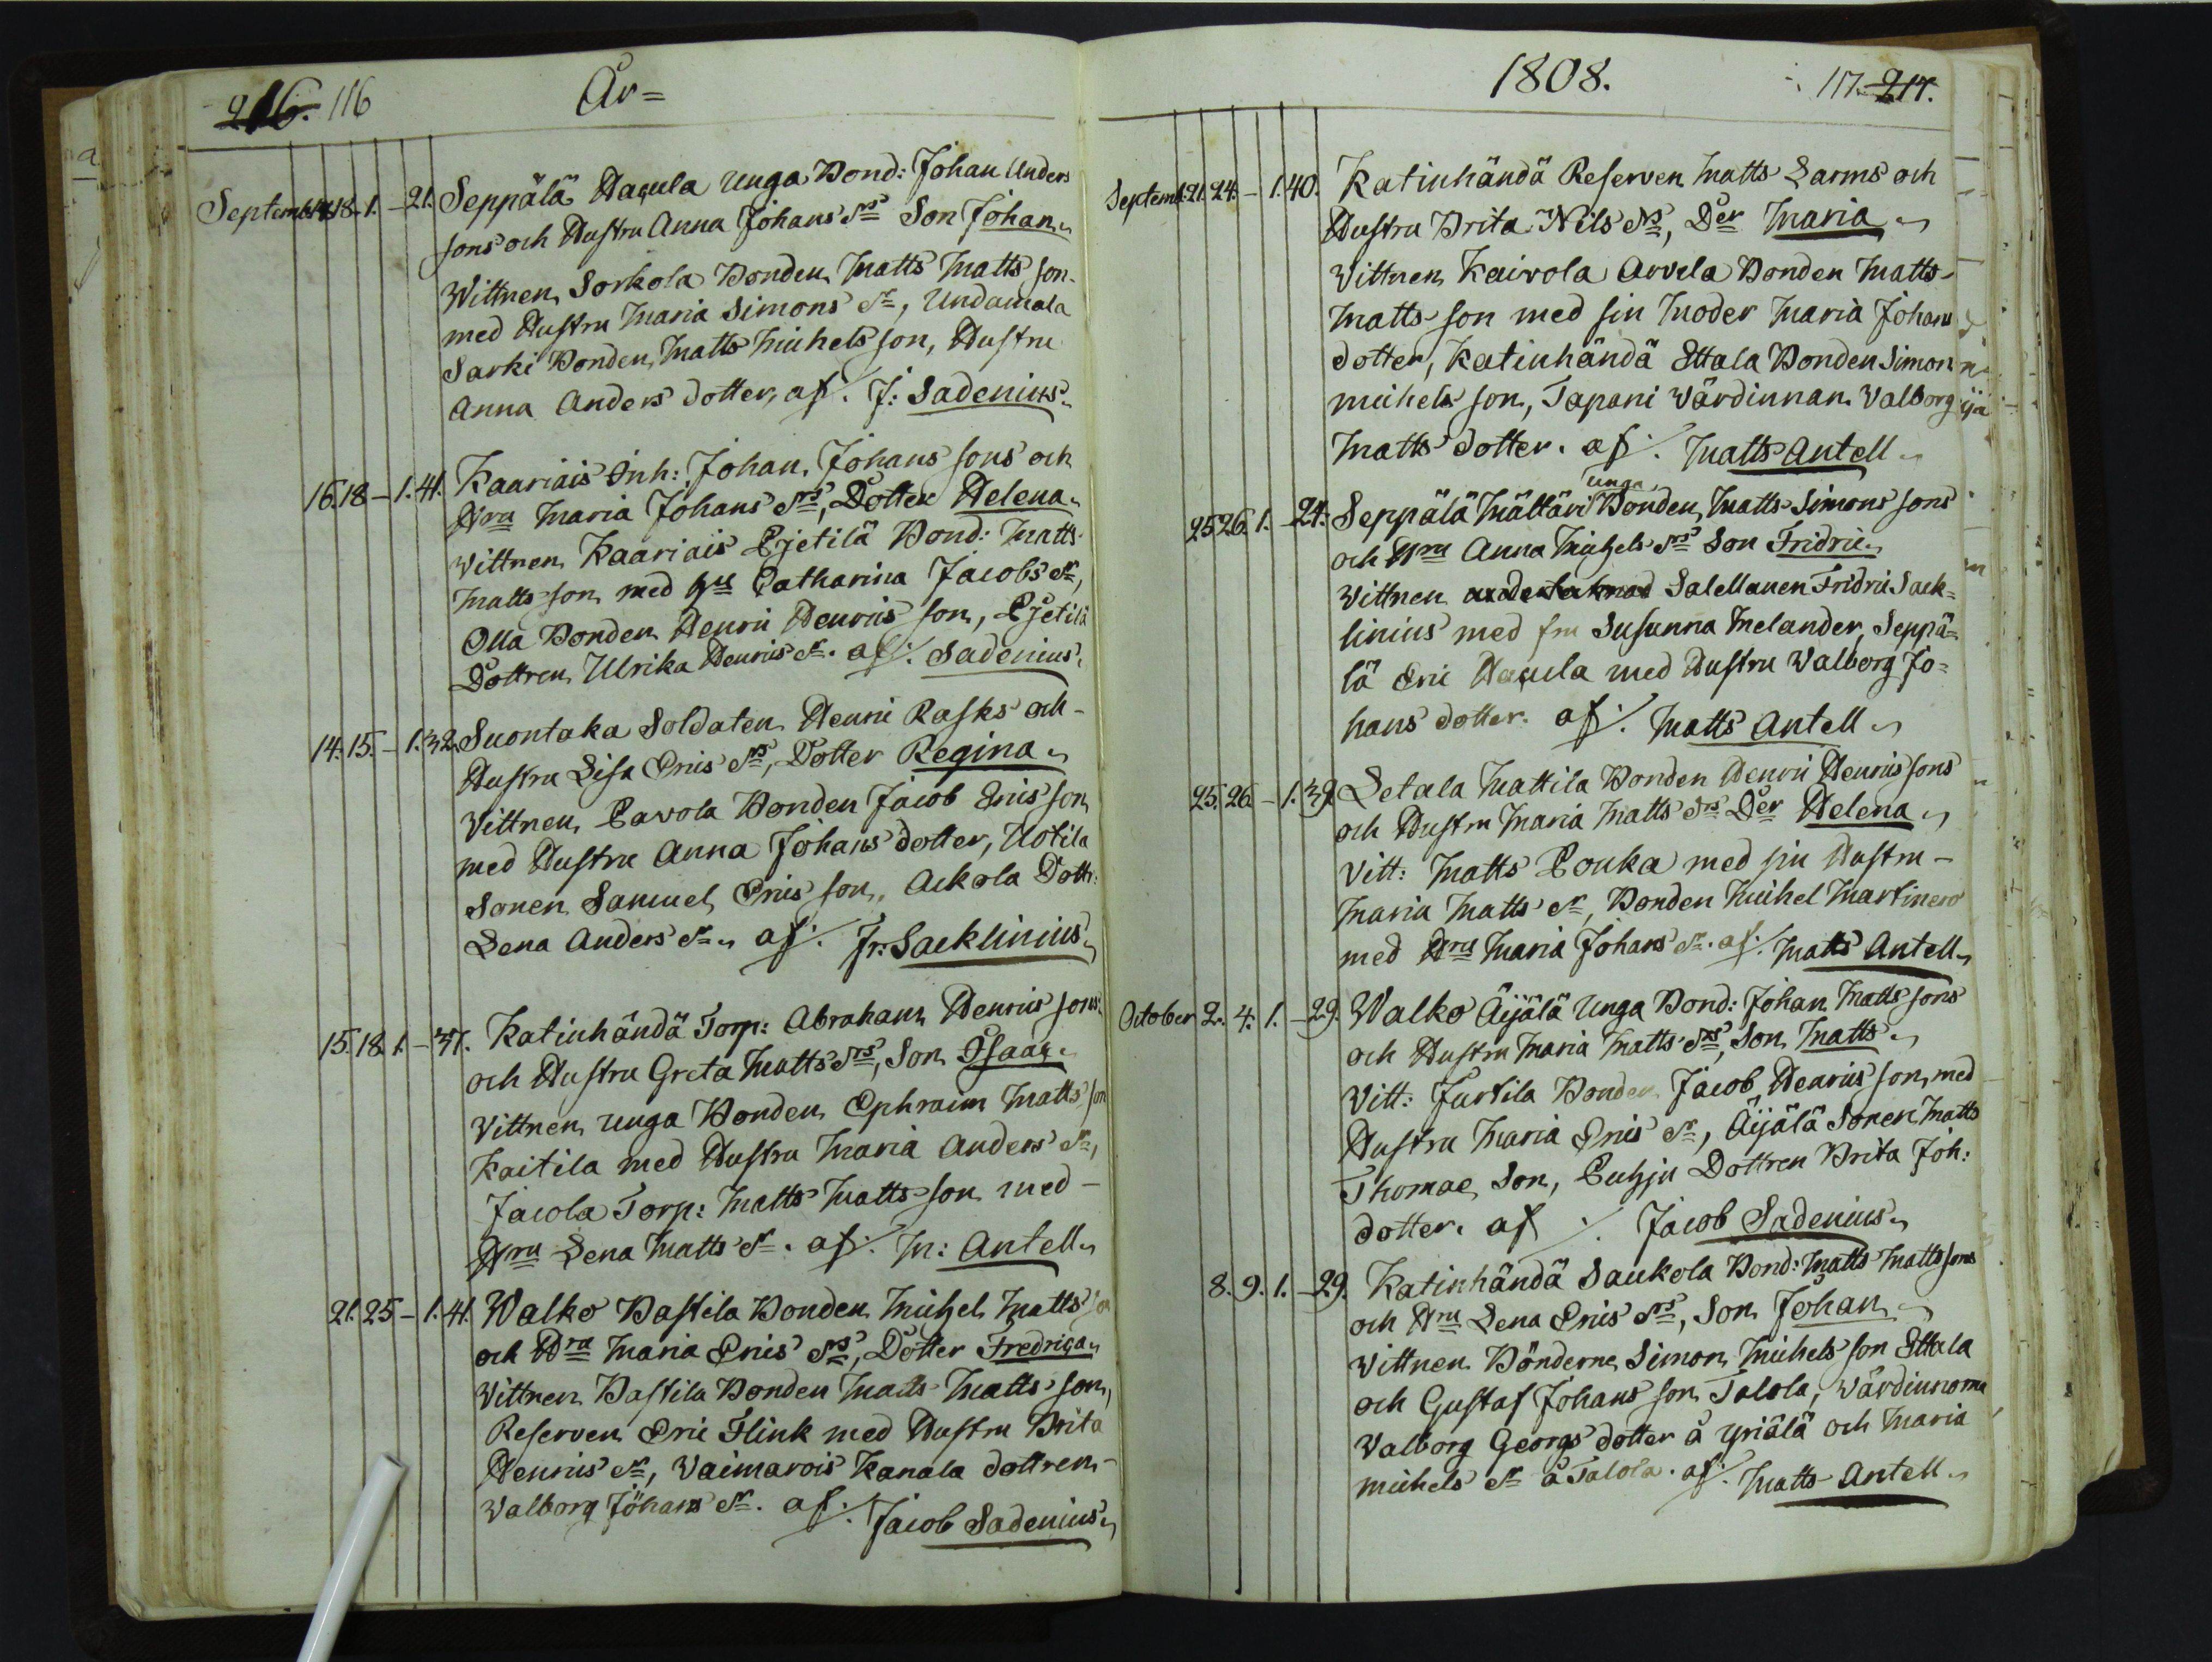 216. 116 År=
September 14. 18. 1. - 21. Seppälä Haqula unga Bond: Johan Anders
sons och Hustru Anna Johans Drs Son Johan
Wittnen, Sorkola Bonden Matts Matts son
med Hustru Maria Simons Dr, Undamala
Sarki Bonden, Matts Michels son, Hustru
Anna Anders dotter, af: J: Sadenius
16. 18 - 1. 41. Kaariais Inh: Johan Johans sons och
Hru Maria Johans Drs, Dotter Helena
Vittnen Kaariais Pjetilä Bond: Matts
Mattsson med Hu Catharina Jacobs Dr,
Olla Bonden Henric Henrics son, Pjetilä
Dottren Ulrika Henrics Dr. af: Sadenius
14. 15. - 1. 32. Suontaka Soldaten Henric Rasks och
Hustru Lisa Erics Drs, Dotter Regina
Vittnen, Pavola Bonden Jacob Erics son
med Hustru Anna Johans dotter, Uotila
Sonen Samuel Erics son, Ackola Dottr:
Lena Anders Dr af: Fr: Sacklinius
15. 18. 1. - 37. Katinhändä Torp: Abraham Henrics sons
och Hustru Greta Matts Drs, Son Isaac
Vittnen, unga Bonden Ephraim Matts son
Kaitila med Hustru Maria Anders Dr,
Jacola Torp: Matts Matts son med
Hru Lena Matts Dr. af: M: Antell
21. 25 - 1. 41. Walko Pastila Bonden Michel Matts son
och Hru Maria Erics Drs, Dotter Fredrica
Vittnen Pastila Bonden Matts Matts son,
Reserven Eric Flink med Hustru Brita
Henrics Dr, Vaimarois Kanala dottren
Valborg Johans Dr. af: Jacob Sadenius
1808. 117. 217.
Septemb: 21. 24. - 1. 40. Katinhändä Reserven Matts Larms och
Hustru Brita Nils Drs, Der Maria
Vittnen, Kaivola Arvela Bonden Matts
Matts son med sin Moder Maria Johans
dotter, Katinhändä Ettala Bonden Simon
Michels son, Tapani Wärdinnan Valborg
Matts dotter. af: Matts Antell
unga
25. 26. 1. - 24. Seppälä Mälläri Bonden, Matts Simons sons
och Hru Anna Michels Drs Son Fridric
Vittnen Salellanen Fridric Sack=
linius med fru Susanna Melander, Seppä=
lä Eric Haqula med Hustru Walborg Jo=
hans dotter. af: Matts Antell
25. 26. - 1. 39. Letala Mattila Bonden Henric Henrics sons
och Hustru Maria Matts Drs Der Helena
Vitt: Matts Pouka med sin Hustru
Maria Matts Dr, Bonden Michel Martinen
med Hru Maria Johans Dr. af: Matts Antell
October 2. 4. 1. - 29. Walko Äijälä unga Bond: Johan Matts sons
och Hustru Maria Matts Drs, Son Matts
Vitt: Furtila Bonden Jacob Henrics son, med
Hustru Maria Erics Dr, Äijälä Sonen Matts
Thomae Son, Puhju Dottren Brita Joh:
dotter. af: Jacob Sadenius
8. 9. 1. - 29. Katinhändä Saukola Bond: Matts Matts sons
och Hru Lena Erics Drs, Son Johan
Vittnen Bönderne Simon Michels son Ettala
och Gustaf Johans son Talola, Wärdinnorna
Valborg Georgs dotter å Yriälä och Maria
Michels Dr å Talola. af: Matts Antell